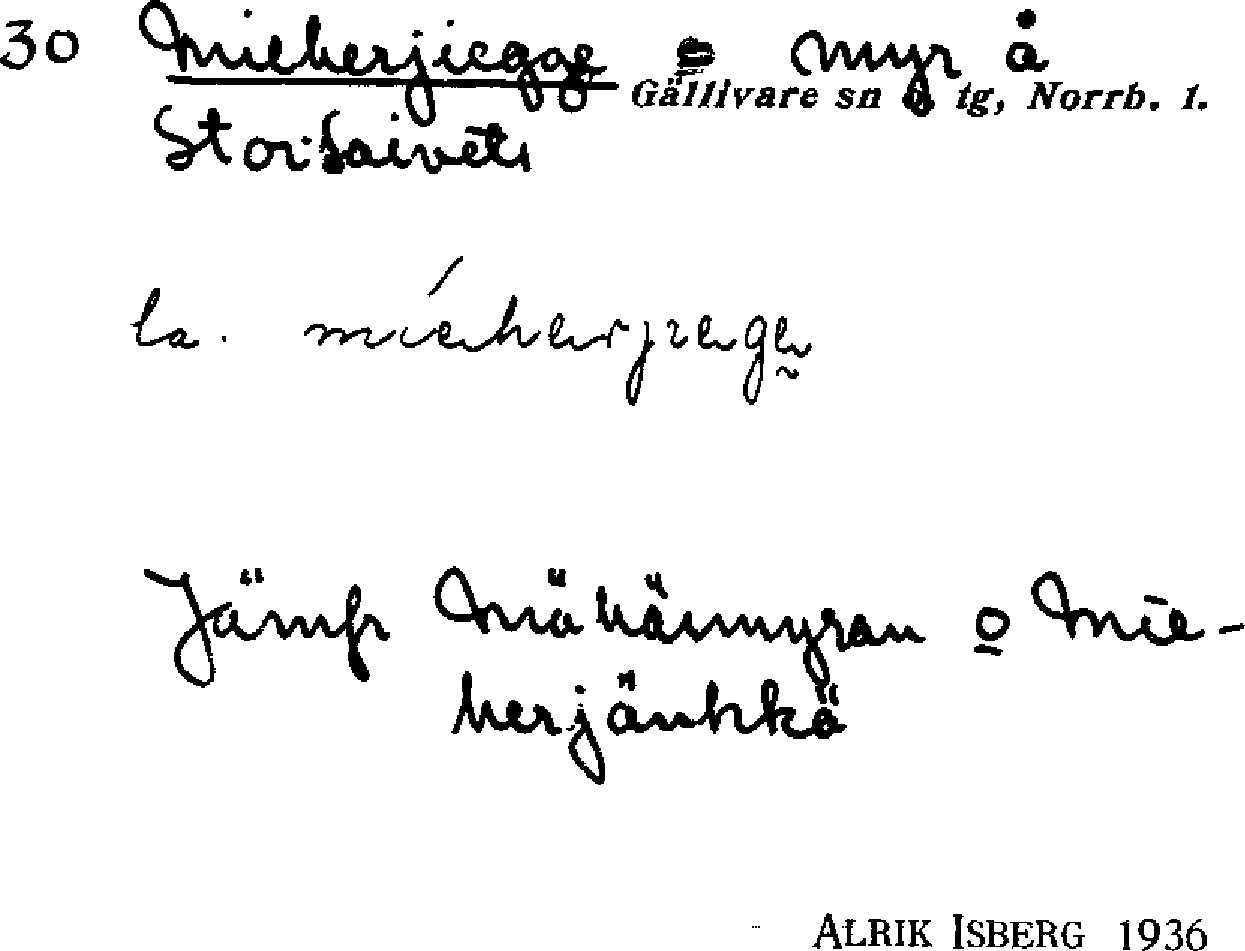 30 Mieherjiegge = myr å
Gällivare sn o. tg, Norrb. l.
Storsaivets
la. mieherjiege
Jämfr Mähärmyran o Mie-
herjänkkä
ALRIK ISBERG 1936